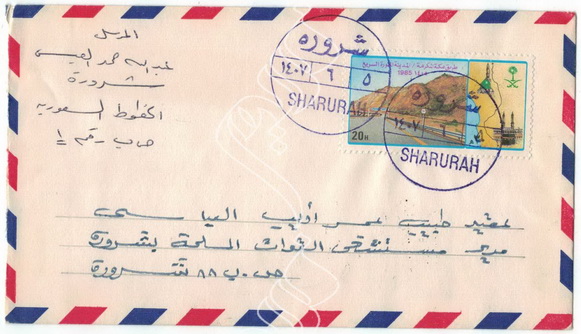 المرسل
عبدالله محمد العيسى
شرورة
الخطوط السعودية
ص.ب رقم ١
شروره
١٤٠٧ ٦ ٥
SHARURAH
1985
20H
شروره
١٤٠٧
SHARURAH
عمر أديب البياسى
مدير مستشفى القوات المسلحة بشرورة
ص.ب ٨٨ شرورة